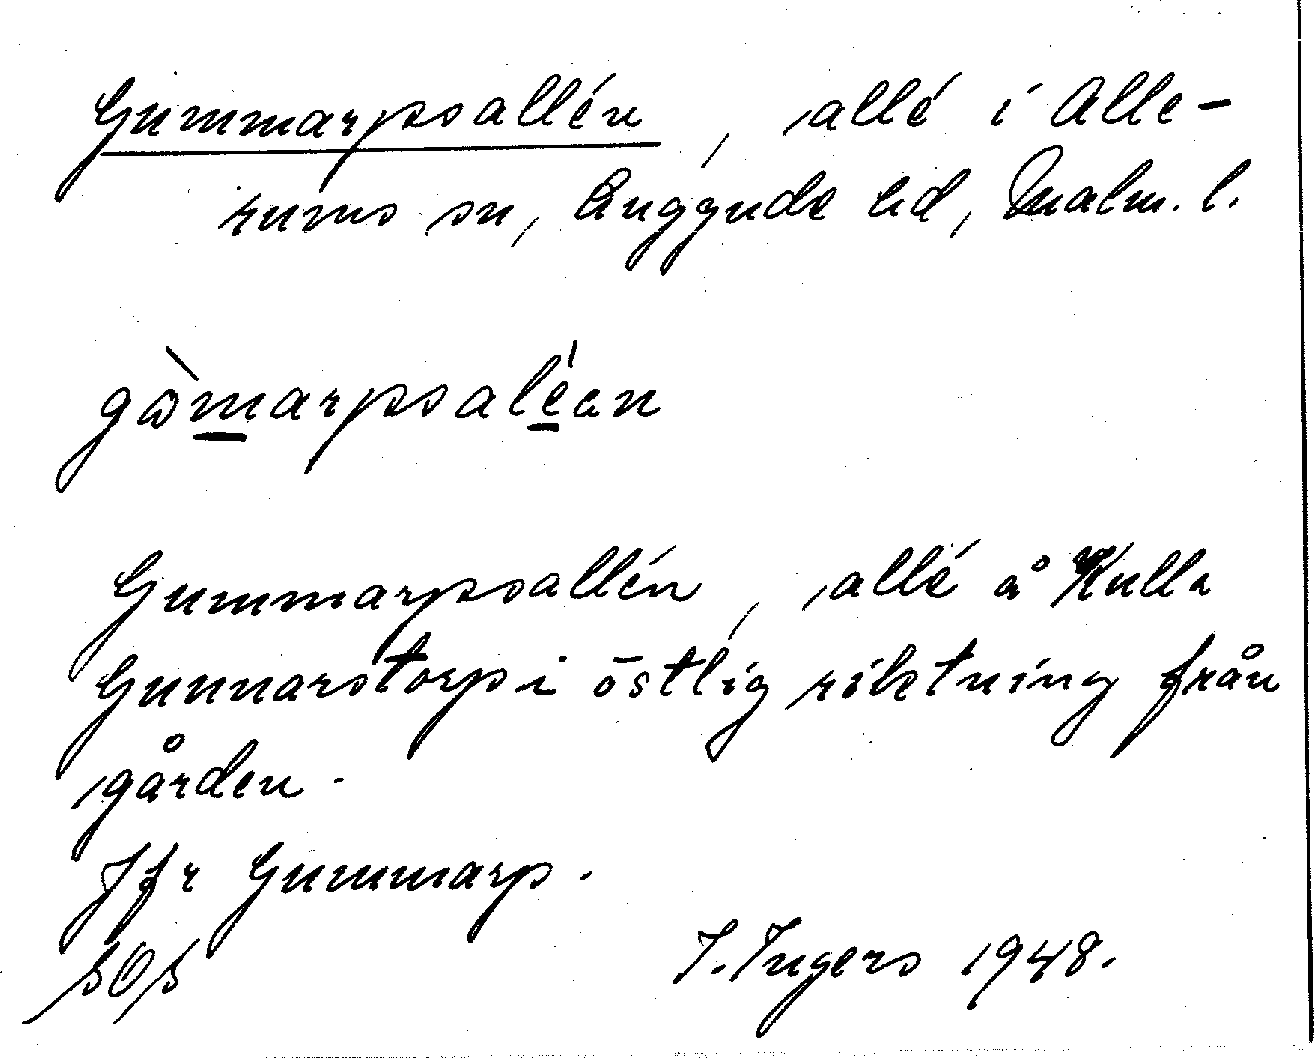 Gummarpsallén, allé i Alle-
rums sn, Luggude hd, Malm. l.
gòmarpsaléan
Gummarpsallén, allé å Kulla
Gunnarstorp i östlig riktning från
gården.
Jfr Gummarp.
I. Ingers 1948.